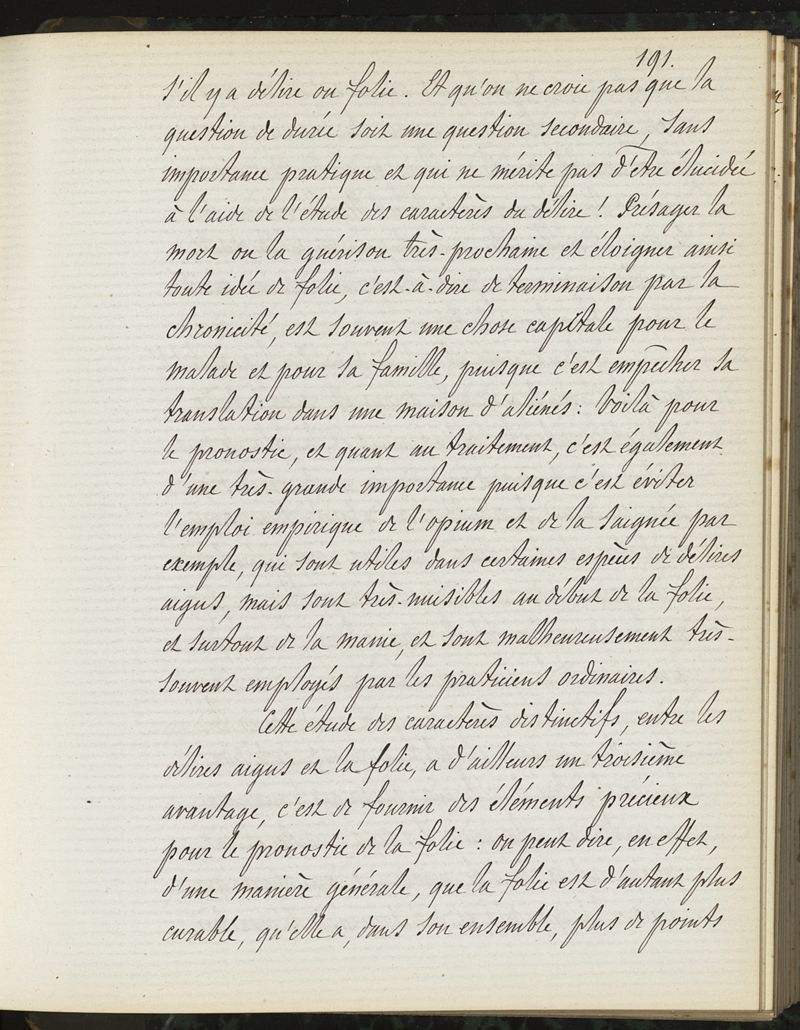 191.
s'il y a délire ou folie. Et qu'on ne croie pas que la
question de durée soit une question secondaire, sans
importance pratique et qui ne mérite pas d'être élucidée
à l'aide de l'étude des caractères du délire! Présager la
mort ou la guérison très-prochaine et éloigner ainsi
toute idée de folie, c'est-à-dire de terminaison par la
chronicité, est souvent une chose capitale pour le
malade et pour sa famille, puisque c'est empêcher sa
translation dans une maison d'aliénés: Voilà pour
le pronostic, et quant au traitement, c'est également
d'une très-grande importance puisque c'est éviter
l'emploi empirique de l'opium et de la saignée par
exemple, qui sont utiles dans certaines espèces de délires
aigus, mais sont très-nuisibles au début de la folie,
et surtout de la manie, et sont malheureusement très-
souvent employés par les praticiens ordinaires.
Cette étude des caractères distinctifs, entre les
délires aigus et la folie, a d'ailleurs un troisième
avantage, c'est de fournir des éléments précieux
pour le pronostic de la folie: on peut dire, en effet,
d'une manière générale, que la folie est d'autant plus
curable, qu'elle a, dans son ensemble, plus de points